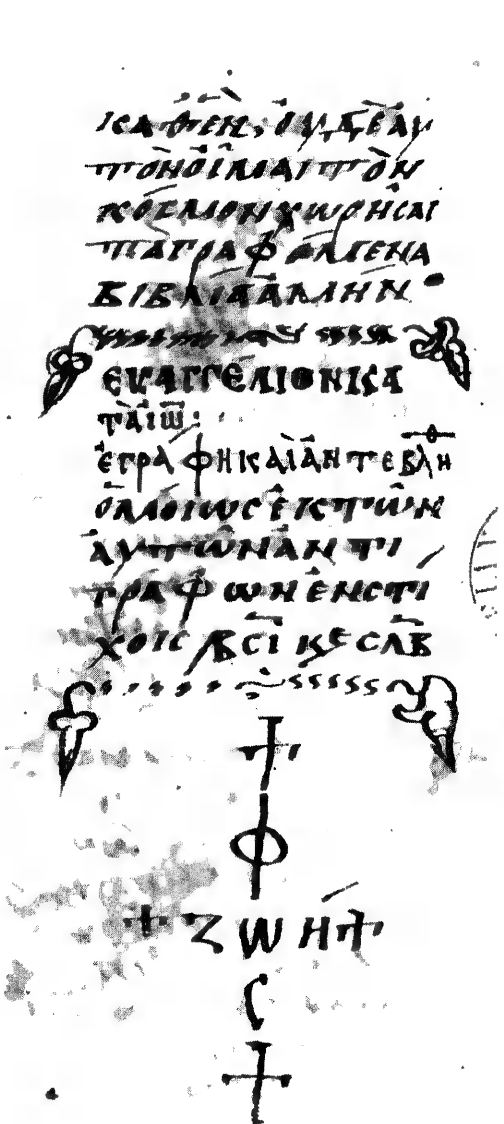 ΚΑΘΕΝ, ΟΥΔΕΑΥ
ΤΟΝΟΙΜΑΙΤΟΝ
ΚΟCΜΟΝΧΩΡΗCΑΙ
ΤΑΓΡΑΦΟΜΕΝΑ
ΒΙΒΛΙΑΑΜΗΝ •
ΕΥΑΓΓΕΛΙΟΝΚΑ
ΤΑΙΩ:
ΕΓΡΑΦΗΚΑΙΑΝΤΕΒΛΗΘ
ΟΜΟΙΩCΕΚΤΩΝ
ΑΥΤΩΝΑΝΤΙ
ΓΡΑΦΩΝΕΝCΤΙ
ΧΟΙC ͵ΒCΙ ΚΕ CΛΒ
Φ
ΖΩΗ
C